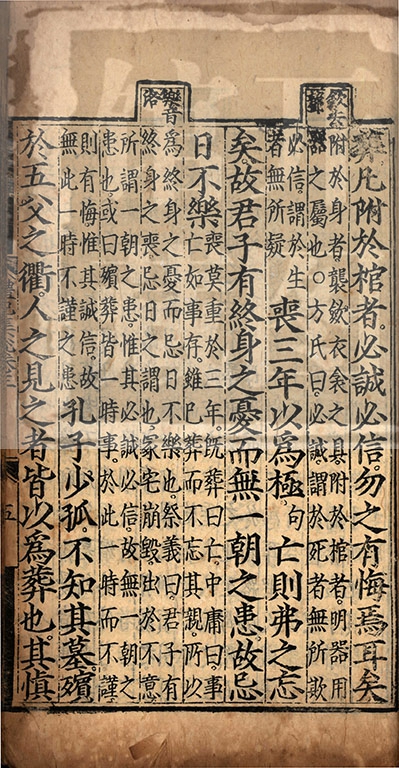 斂去
聲
樂音
洛
葬凡附於棺者必誠必信勿之有悔焉耳矣
附於身者襲斂衣衾之具附於棺者明器用
器之屬也○方氏曰必誠謂於死者無所欺
必信謂於生
者無所疑
喪三年以爲極句亡則弗之忘
矣故君子有終身之憂而無一朝之患故忌
日不樂
喪莫重於三年既葬曰亡中庸曰事
亡如事存雖已葬而不忘其親所以
爲終身之憂而忌日不樂也祭義曰君子有
終身之喪忌日之謂也冢宅崩毀出於不意
所謂一朝之患惟其必誠必信故無一朝之
患也或曰殯葬皆一時事於此一時而不謹
則有悔惟其誠信故
無此一時不謹之患
孔子少孤不知其墓殯
於五父之衢人之見之者皆以爲葬也其慎
五